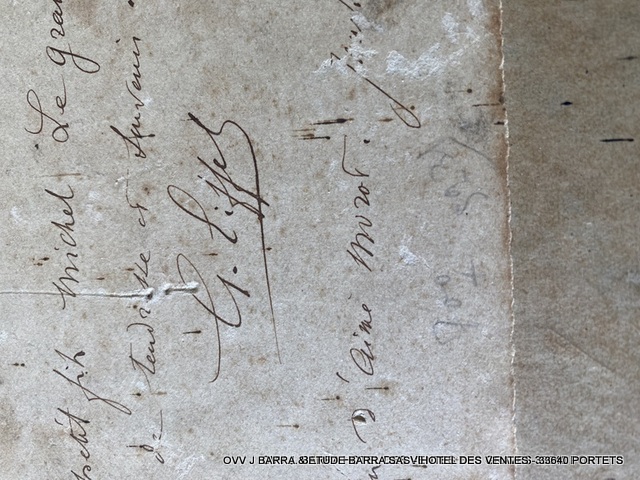 petit fils Michel Le gran
de tendresse et Souvenir
G. Eiffel
d'Aimé Morot.
OVV J BARRA & ETUDE BARRA SAS HOTEL DES VENTES - 33640 PORTETS